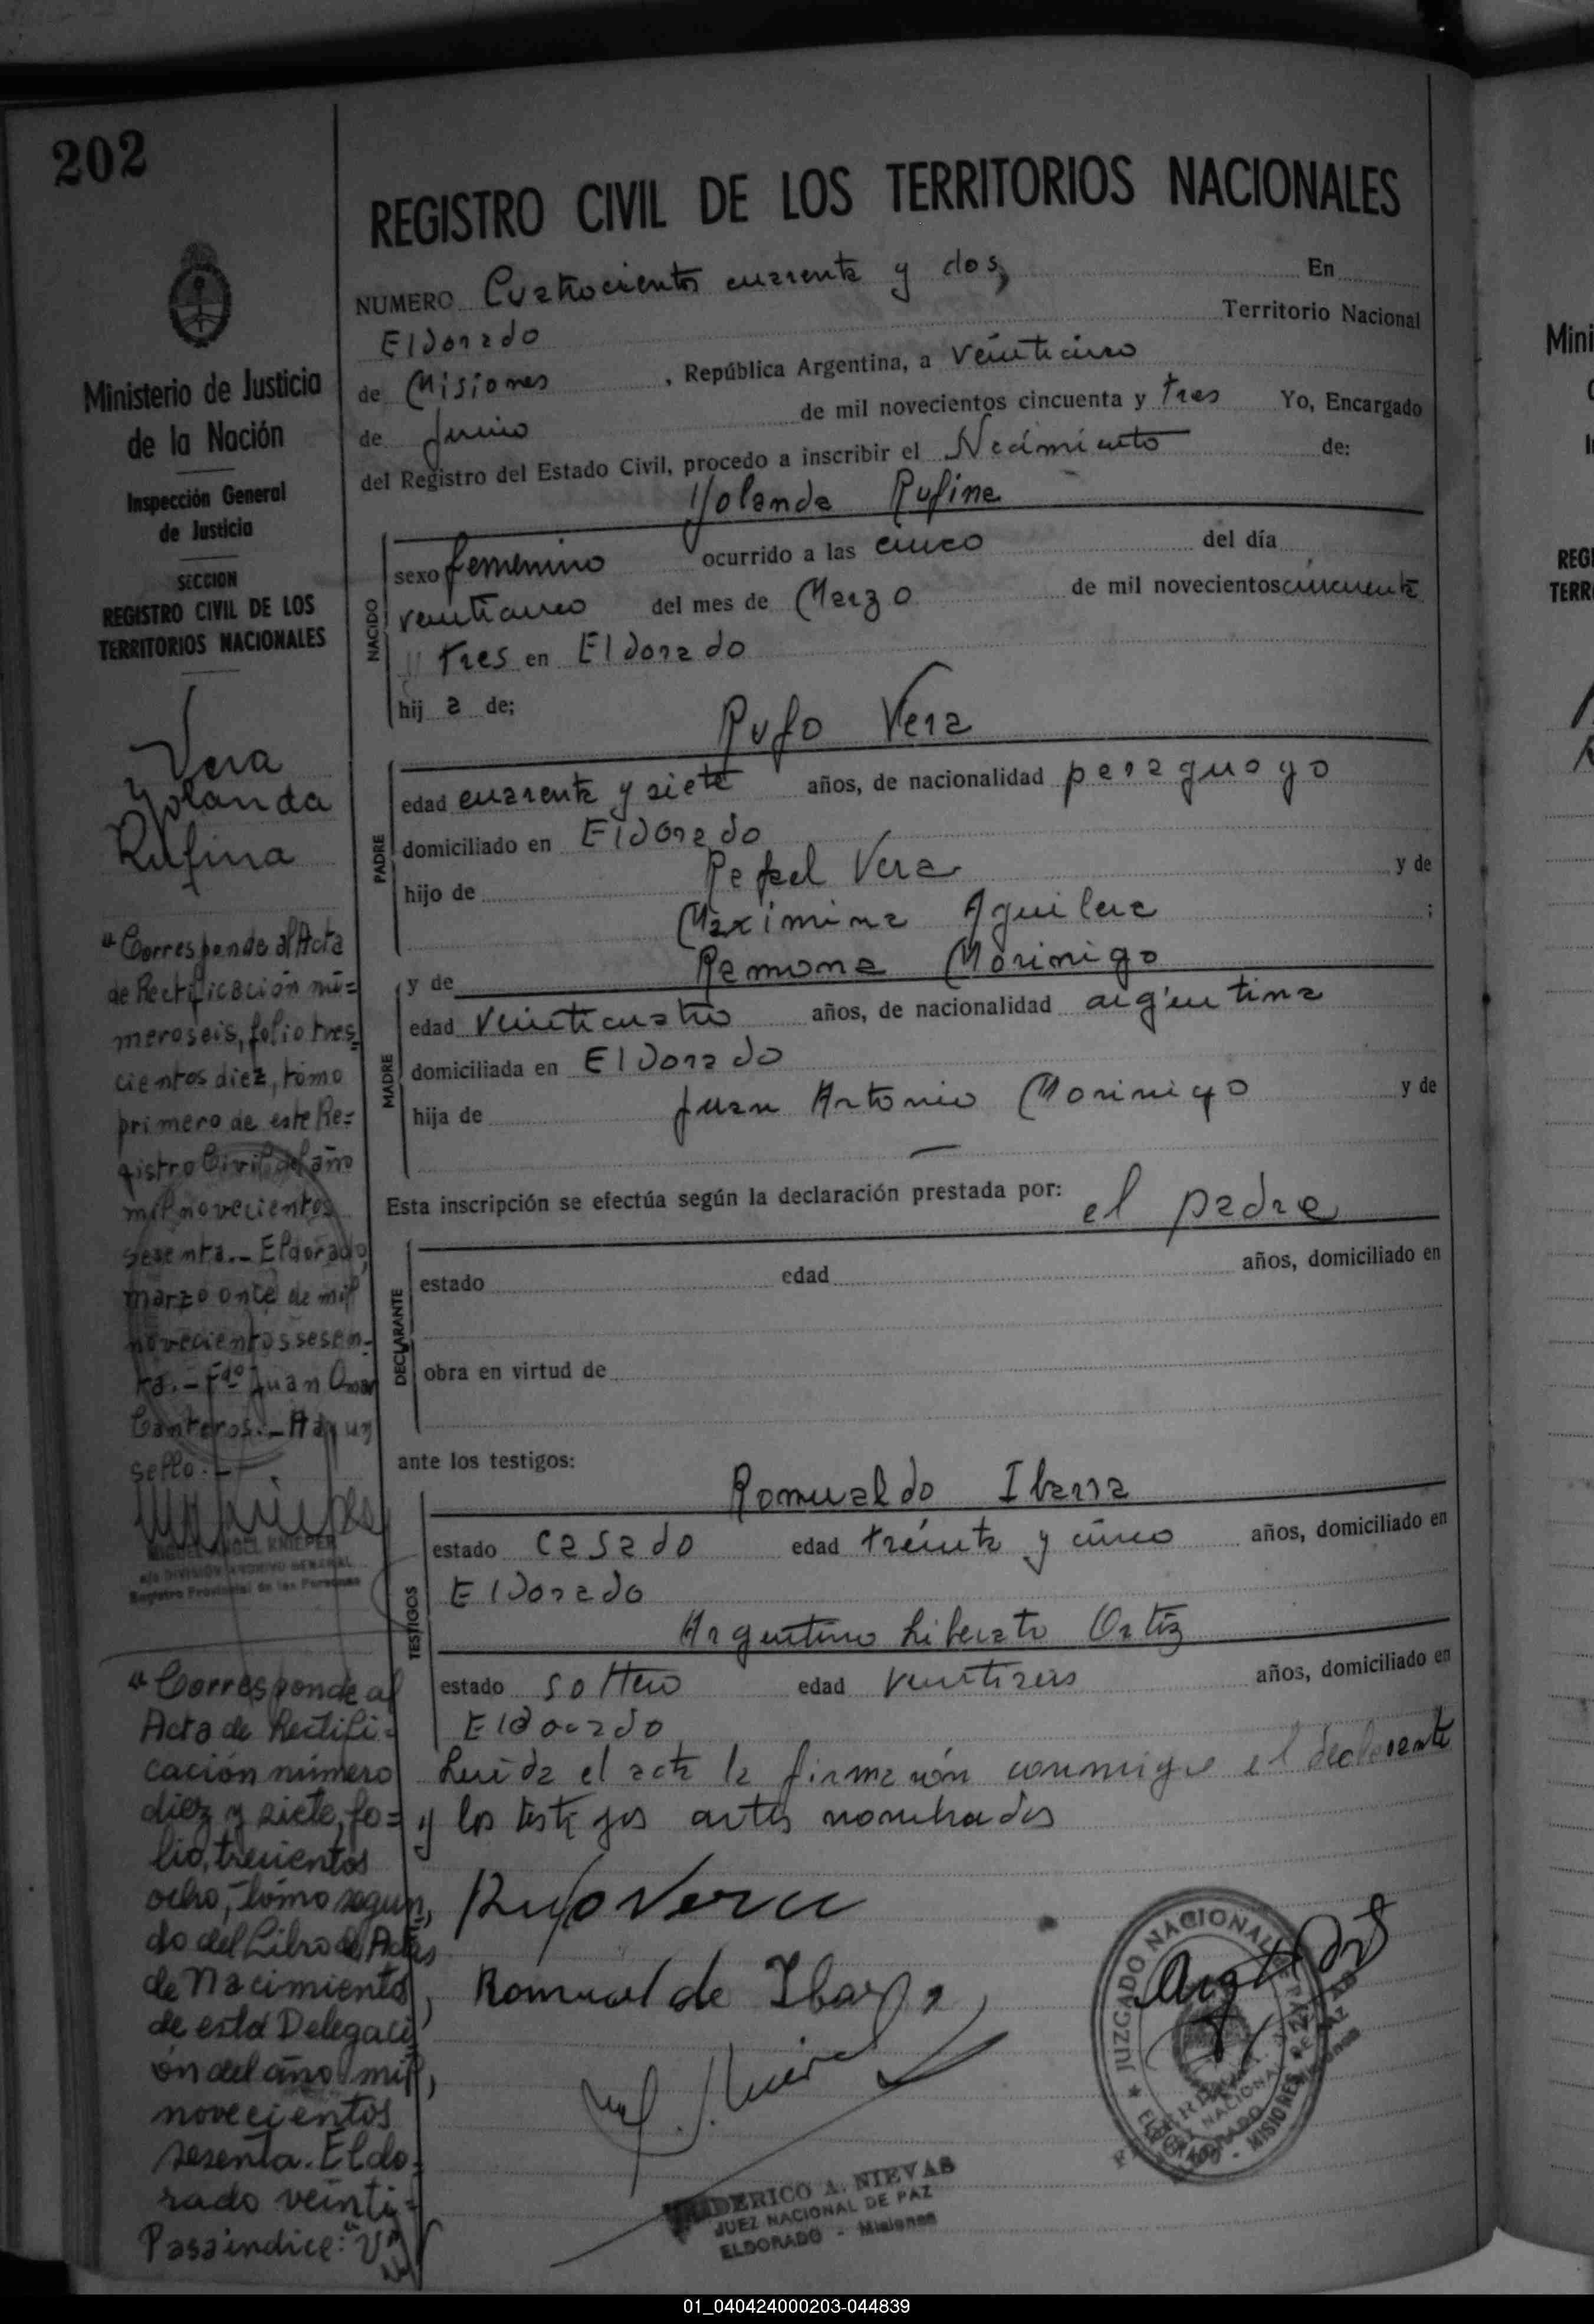 202
REGISTRO CIVIL DE LOS TERRITORIOS NACIONALES
Ministerio de Justicia
de la Nación
Inspección General
de Justicia
SECCION
REGISTRO CIVIL DE LOS
TERRITORIOS NACIONALES
Vera
Yolanda
Rufina
"Corresponde al Acta
de Rectificación nú=
mero seis, folio tres=
cientos diez, tomo
primero de este Re=
gistro Civil del año
mil novecientos
sesenta.- Eldorado,
marzo once de mil
novecientos sesen-
ta.- Fdo Juan Omar
Canteros.- Hay un
sello.-
MIGUEL ANGEL KNIEPER
a/c DIVISION ARCHIVO GENERAL
Registro Provincial de las Personas
"Corresponde al
Acta de Rectifi=
cación número
diez y siete, fo=
lio, trecientos
ocho, tomo segun,
do del Libro de Actas
de Nacimiento,
de esta Delegaci
ón del año mil,
novecientos
sesenta. Eldo=
rado veinti=
Pasa indice:"
NUMERO Cuatrocientos cuarenta y dos, En
Eldorado Territorio Nacional
de Misiones, República Argentina, a veinticinco
de Junio de mil novecientos cincuenta y tres Yo, Encargado
del Registro del Estado Civil, procedo a inscribir el Nacimiento de:
Yolanda Rufina
NACIDO
sexo femenino ocurrido a las cinco del día
veinticinco del mes de Marzo de mil novecientos cincuenta
y tres en Eldorado
hij a de;
Rufo Vera
PADRE
edad cuarenta y siete años, de nacionalidad paraguayo
domiciliado en Eldorado
hijo de Rafael Vera y de
Maximina Aguilera ;
y de Ramona Morinigo
MADRE
edad veinticuatro años, de nacionalidad argentina
domiciliada en Eldorado
hija de Juan Antonio Morinigo y de
—
Esta inscripción se efectúa según la declaración prestada por: el padre
DECLARANTE
estado edad años, domiciliado en
obra en virtud de
ante los testigos:
Romualdo Ibarra
TESTIGOS
estado casado edad treinta y cinco años, domiciliado en
Eldorado
Argentino Liberato Ortiz
estado soltero edad veintiseis años, domiciliado en
Eldorado
Leída el acta la firmarón conmigo el declarante
y los testigos antes nombrados
Rufo Vera
Romualdo Ibarra
JUZGADO NACIONAL DE PAZ
ELDORADO - MISIONES
FEDERICO A. NIEVAS
JUEZ NACIONAL DE PAZ
ELDORADO - Misiones
Mini
REGI
TERRI
01_040424000203-044839